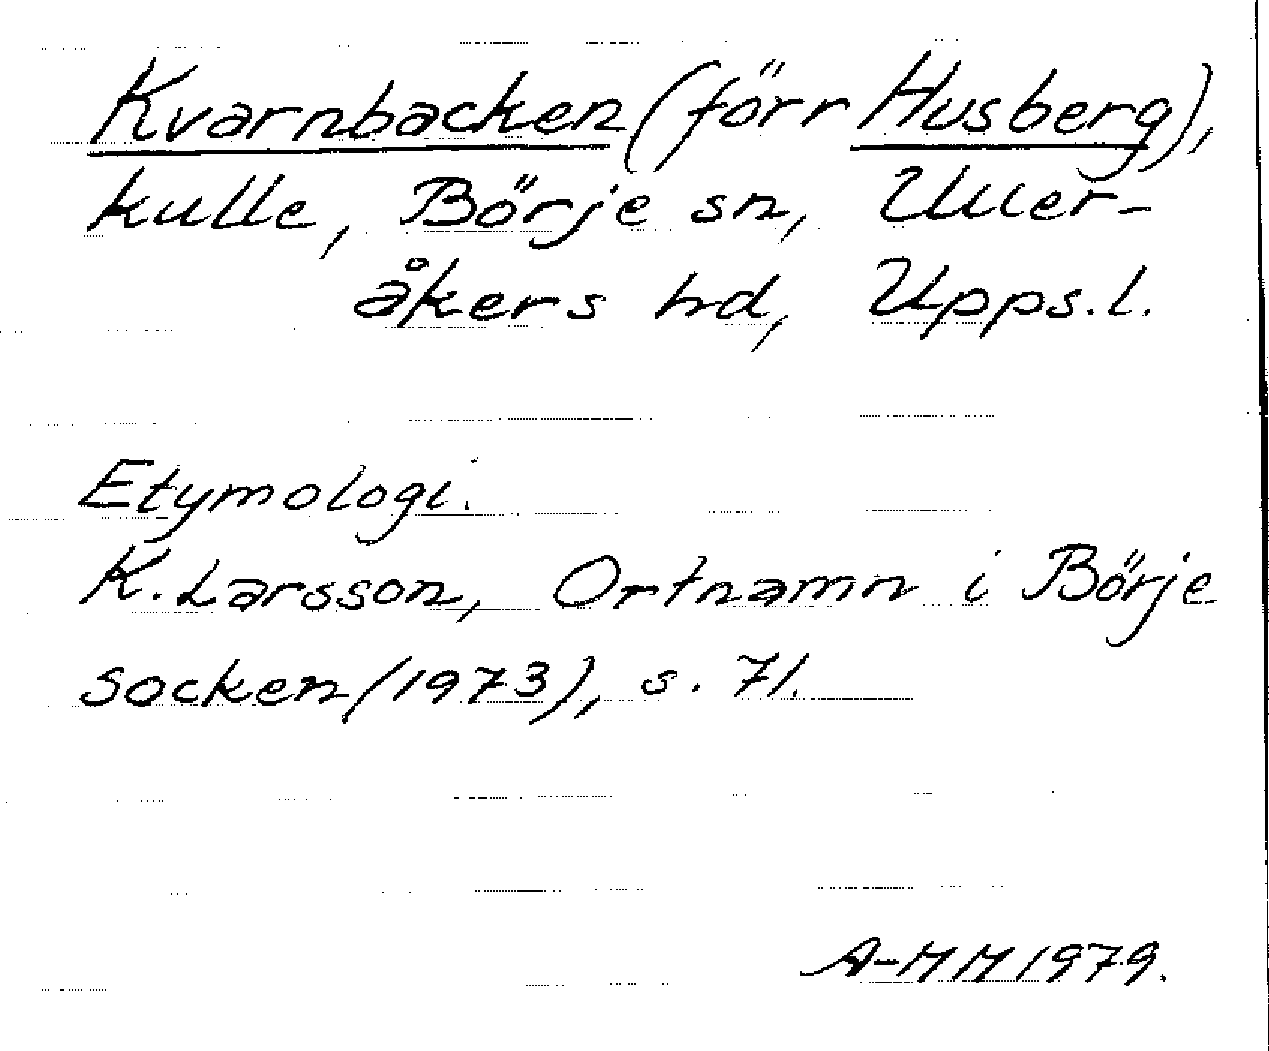 Kvarnbacken (förr Husberg),
kulle, Börje sn, Uller-
åkers hd, Upps.l.
Etymologi.
K. Larsson, Ortnamn i Börje
socken (1973), s. 71.
A-MM 1979.